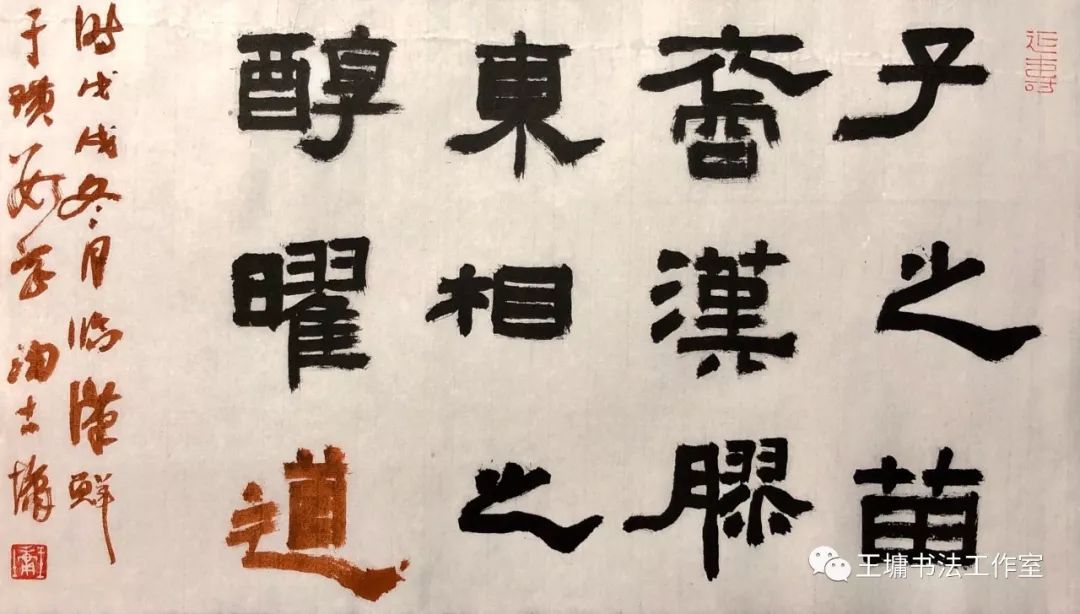 延壽
子之苗
裔漢膠
東相之
醇曜道
時戊戌冬月臨漢鮮
于璜 墉
王墉
王墉书法工作室